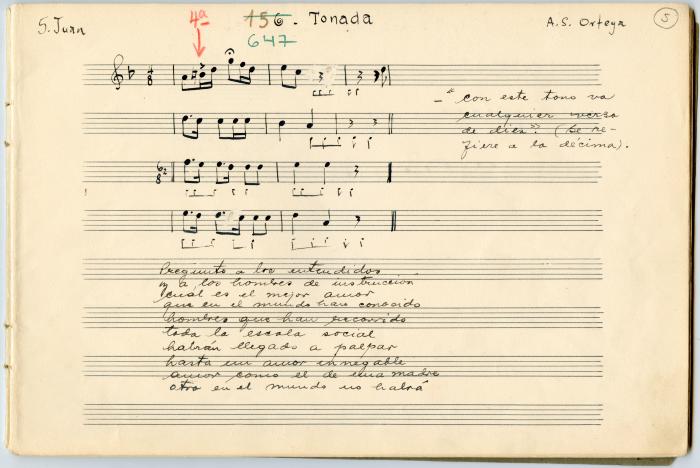 S. Juan
4ª
156 - Tonada
647
A. S. Ortega
5
- "con este tono va
cualquier verso
de diez". (Se re-
fiere a la décima).
Pregunto a los entendidos
y a los hombres de instrucción
cual es el mejor amor
que en el mundo han conocido
hombres que han recorrido
toda la escala social
habrán llegado a palpar
hasta un amor innegable
amor como el de una madre
otro en el mundo no habrá